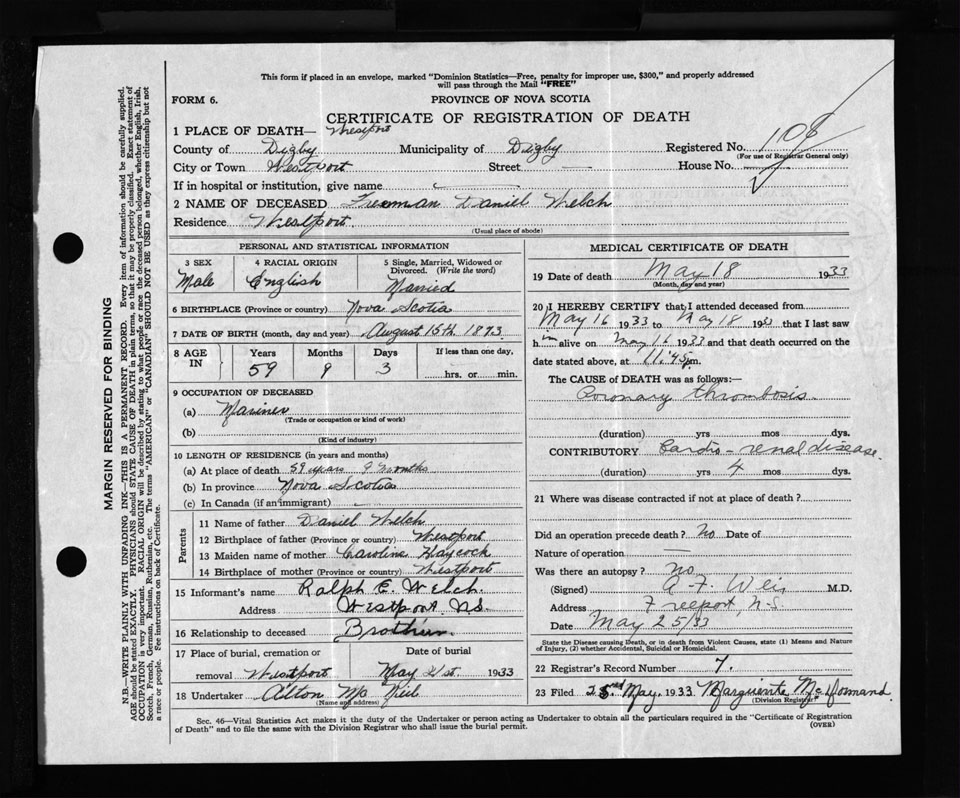 This form if placed in an envelope, marked "Dominion Statistics—Free, penalty for improper use, $300," and properly addressed
will pass through the Mail "FREE"
FORM 6.
PROVINCE OF NOVA SCOTIA
CERTIFICATE OF REGISTRATION OF DEATH
1 PLACE OF DEATH— Westport
County of Digby Municipality of Digby Registered No. 108
(For use of Registrar General only)
City or Town Westport Street — House No.
If in hospital or institution, give name —
2 NAME OF DECEASED Freeman Daniel Welch
Residence Westport
(Usual place of abode)
PERSONAL AND STATISTICAL INFORMATION
3 SEX 4 RACIAL ORIGIN 5 Single, Married, Widowed or
Divorced. (Write the word)
Male English Married
6 BIRTHPLACE (Province or country) Nova Scotia
7 DATE OF BIRTH (month, day and year) August 15th. 1873.
8 AGE IN Years Months Days If less than one day,
59 9 3 hrs. or min.
9 OCCUPATION OF DECEASED
(a) Mariner
(Trade or occupation or kind of work)
(b)
(Kind of industry)
10 LENGTH OF RESIDENCE (in years and months)
(a) At place of death 59 years 9 months
(b) In province Nova Scotia
(c) In Canada (if an immigrant)
Parents
11 Name of father Daniel Welch
12 Birthplace of father (Province or country) Westport
13 Maiden name of mother Caroline Haycock
14 Birthplace of mother (Province or country) Westport
15 Informant's name Ralph E. Welch.
Address Westport, N.S.
16 Relationship to deceased Brother.
17 Place of burial, cremation or Date of burial
removal Westport May 21st. 1933
18 Undertaker Alton
(Name and address)
MEDICAL CERTIFICATE OF DEATH
19 Date of death May 18 1933
(Month, day and year)
20 I HEREBY CERTIFY that I attended deceased from
May 16 1933 to May 18 1933 that I last saw
him alive on May 16 1933 and that death occurred on the
date stated above, at 11.45 p.m.
The CAUSE of DEATH was as follows:—
Coronary thrombosis.
(duration) yrs mos dys.
CONTRIBUTORY Cardio-renal disease.
(duration) yrs 4 mos dys.
21 Where was disease contracted if not at place of death?
Did an operation precede death? No Date of
Nature of operation —
Was there an autopsy? No
(Signed) A. F. M.D.
Address Freeport, N.S.
Date May 25/33
State the Disease causing Death, or in death from Violent Causes, state (1) Means and Nature
of Injury, (2) whether Accidental, Suicidal or Homicidal.
22 Registrar's Record Number 7.
23 Filed May. 1933 Marguerite McDormand
(Division Registrar)
Sec. 46—Vital Statistics Act makes it the duty of the Undertaker or person acting as Undertaker to obtain all the particulars required in the "Certificate of Registration
of Death" and to file the same with the Division Registrar who shall issue the burial permit.
(OVER)
MARGIN RESERVED FOR BINDING
N.B.—WRITE PLAINLY WITH UNFADING INK—THIS IS A PERMANENT RECORD. Every item of information should be carefully supplied.
AGE should be stated EXACTLY. PHYSICIANS should STATE CAUSE OF DEATH in plain terms, so that it may be properly classified. Exact statement of
OCCUPATION is very important. RACIAL ORIGIN will be described by stating to what people or race the deceased person belonged, whether English, Irish,
Scotch, French, German, Russian, Ruthenian, etc. The terms "AMERICAN" or "CANADIAN" SHOULD NOT BE USED as they express citizenship but not
a race or people. See instructions on back of Certificate.